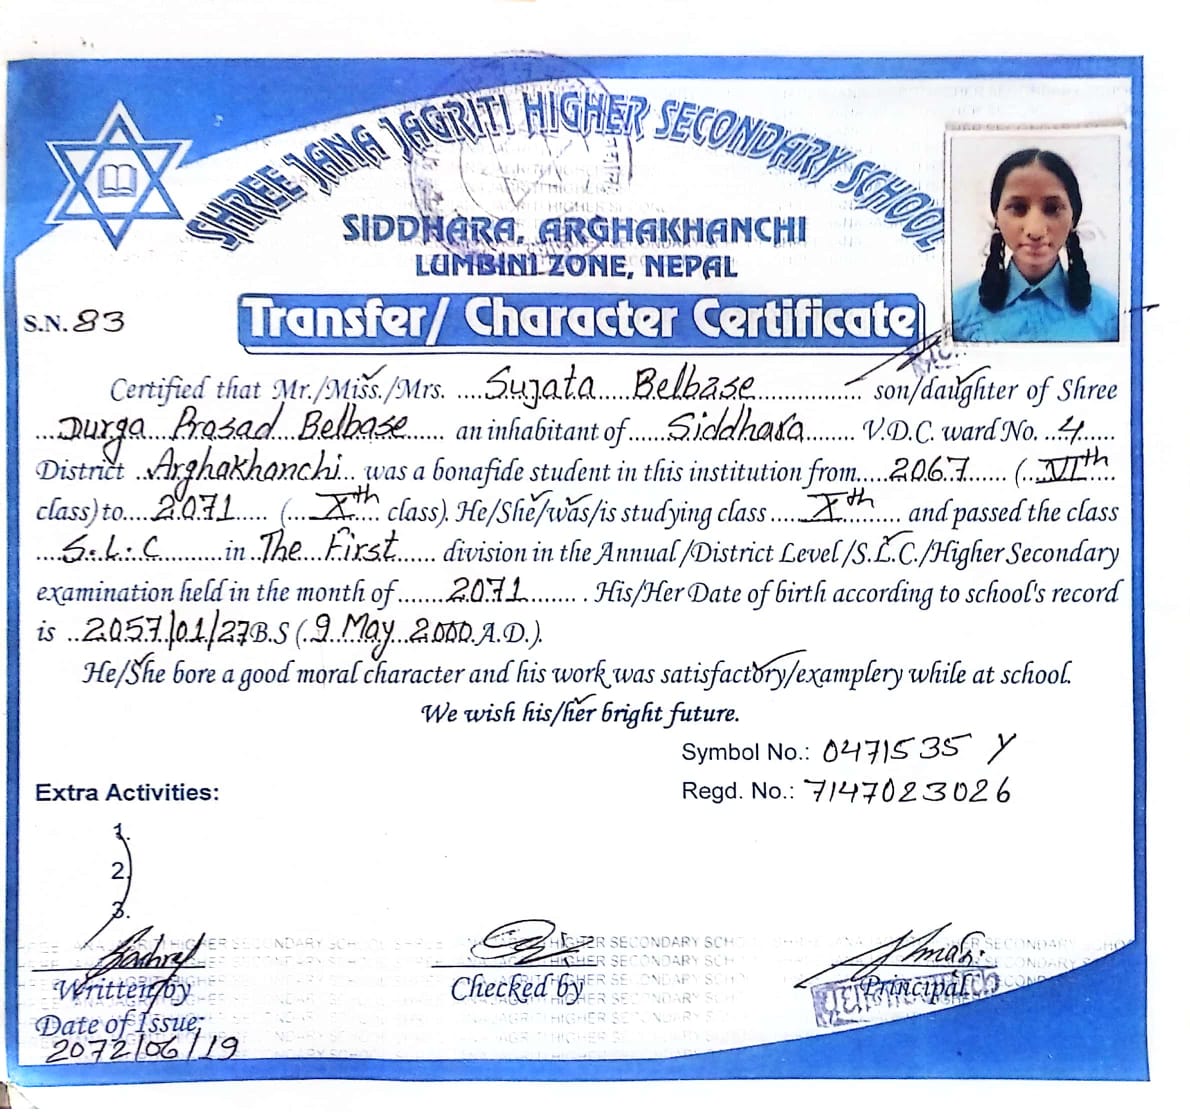 SHREE JANA JAGRITI HIGHER SECONDARY SCHOOL
SIDDHARA, ARGHAKHANCHI
LUMBINI ZONE, NEPAL
S.N. 83
Transfer/ Character Certificate
Certified that Mr./Miss./Mrs. ....Sujata.....Belbase................. son/daughter of Shree
...Durga...Prasad...Belbase...... an inhabitant of......Siddhara........ V.D.C. ward No. ...4......
District ..Arghakhanchi... was a bonafide student in this institution from.....2067....... (...VIth....
class) to....2071...... (....Xth.... class). He/She/was/is studying class .....Xth......... and passed the class
....S.L.C..........in ..The...First...... division in the Annual/District Level/S.L.C./Higher Secondary
examination held in the month of.......2071........ . His/Her Date of birth according to school's record
is ..2057/01/27B.S (..9 May...2000.A.D.).
He/She bore a good moral character and his work was satisfactory/examplery while at school.
We wish his/her bright future.
Symbol No.: 0471535 Y
Regd. No.: 7147023026
Extra Activities:
1.
2.
3.
Written by
Checked by
Principal
Date of Issue;
2072/06/19